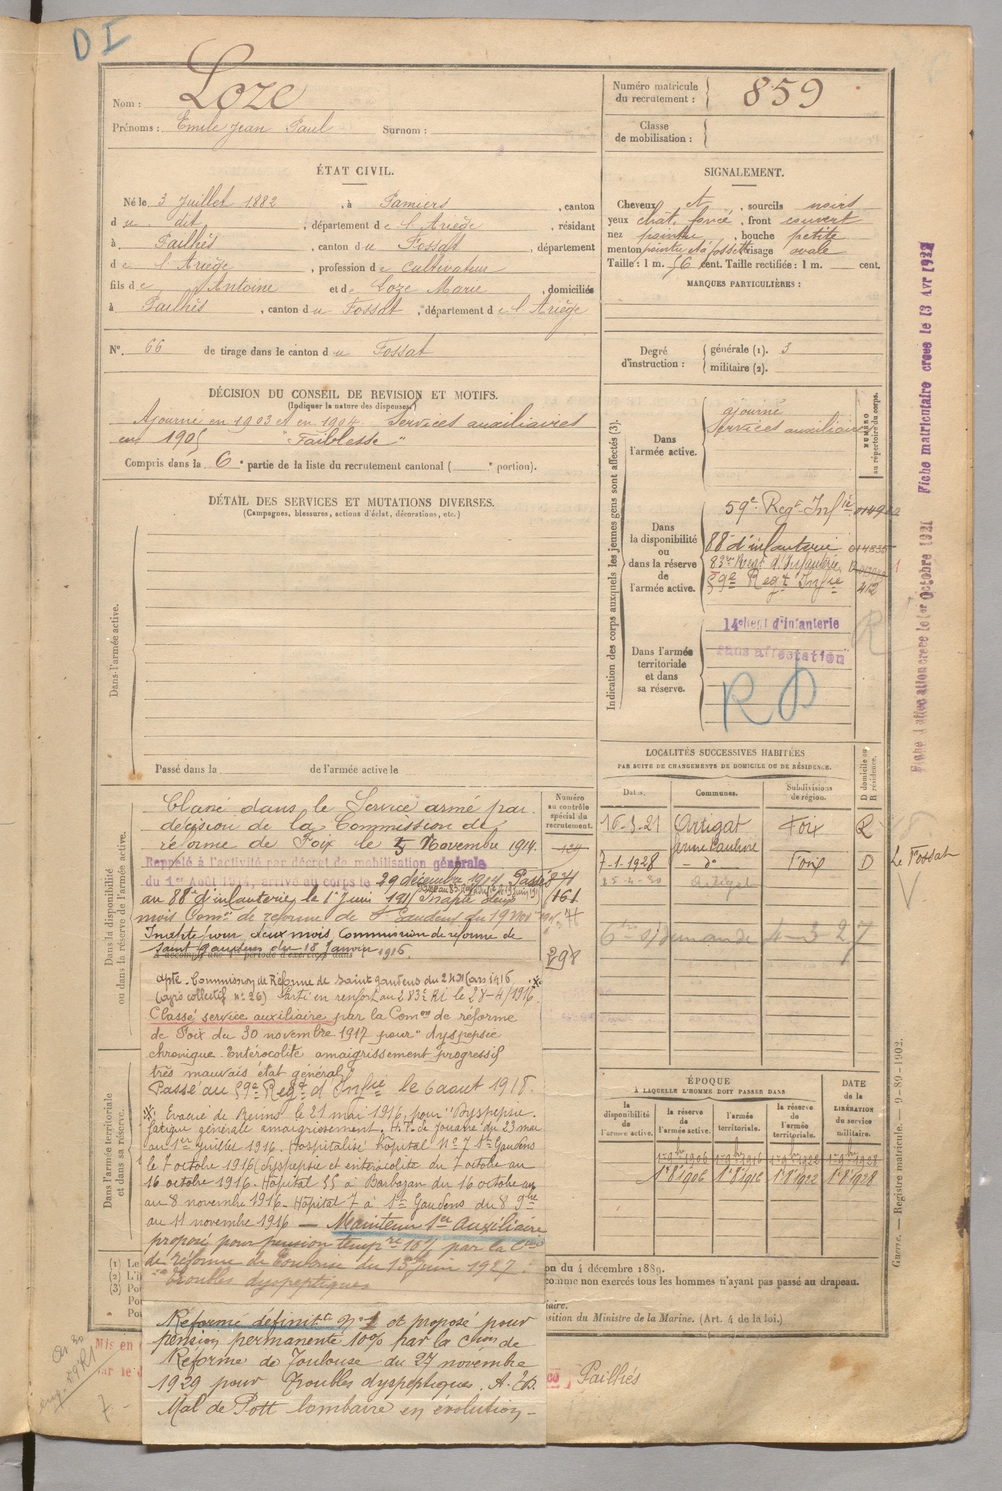 D I
Nom : Loze
Prénoms : Emile Jean Paul Surnom :
Numéro matricule du recrutement : 859
Classe de mobilisation :
ÉTAT CIVIL.
Né le 3 Juillet 1882, à Pamiers, canton
du dit, département de l'Ariège, résidant
à Pailhès, canton du Fossat, département
de l'Ariège, profession de cultivateur
fils de Antoine et de Loze Marie, domiciliés
à Pailhès, canton du Fossat, département de l'Ariège
N° 66 de tirage dans le canton du Fossat
SIGNALEMENT.
Cheveux et, sourcils noirs
yeux chat. foncé, front couvert
nez pointu, bouche petite
menton pointu et à fossette visage ovale
Taille : 1 m. 56 cent. Taille rectifiée : 1 m. cent.
MARQUES PARTICULIÈRES :
Degré d'instruction : générale (1). 3
militaire (2).
DÉCISION DU CONSEIL DE REVISION ET MOTIFS.
(Indiquer la nature des dispenses.)
Ajourné en 1903 et en 1904. Services auxiliaires
en 1905 "Faiblesse"
Compris dans la 6e partie de la liste du recrutement cantonal ( e portion).
DÉTAIL DES SERVICES ET MUTATIONS DIVERSES.
(Campagnes, blessures, actions d'éclat, décorations, etc.)
Dans l'armée active.
Passé dans la de l'armée active le
Indication des corps auxquels les jeunes gens sont affectés (3).
NUMÉRO au répertoire du corps.
Dans l'armée active.
ajourné
Services auxiliaires
Dans la disponibilité ou dans la réserve de l'armée active.
59e Regt Infie
88e d'infanterie 014835
83e Regt d'Infanterie
59e Regt Infie 412
Dans l'armée territoriale et dans sa réserve.
14e Regt d'infanterie
sans affectation
R D
R
Fiche d'affectation créée le 1er Octobre 1921 Fiche matriculaire créée le 13 Avr
LOCALITÉS SUCCESSIVES HABITÉES
PAR SUITE DE CHANGEMENTS DE DOMICILE OU DE RÉSIDENCE.
Dates. Communes. Subdivisions de région. D domicile ou R résidence.
16-3-21 Artigat Foix R
7-1-1928 - do - Foix D Le Fossat
25-4-30 Artigat
4-3-27
Dans la disponibilité ou dans la réserve de l'armée active.
Numéro au contrôle spécial du recrutement.
161
298
Classé dans le Service armé par
décision de la Commission de
réforme de Foix le 5 Novembre 1914.
Rappelé à l'activité par décret de mobilisation générale
du 1er Août 1914, arrivé au corps le 29 décembre 1914 Passé
au 88e d'infanterie le 1er Juin 1915 Inapte deux
mois Comon de réforme de St Gaudens du 19 Nov
Inapte pour deux mois Commission de réforme de
Saint Gaudens du 18 Janvier 1916.
apte. Commission de Réforme de Saint Gaudens du 24 Mars 1916
(avis collectif n° 26) Parti en renfort au 283e RI le 28-4-1916 ※
Classé service auxiliaire par la Comon de réforme
de Foix du 30 novembre 1917 pour "dyspepsie
chronique. Entérocolite amaigrissement progressif
très mauvais état général"
Passé au 59e Regt d'Infie le 6 aout 1918.
Dans l'armée territoriale et dans sa réserve.
※ : Evacué de Reims le 21 mai 1916, pour "Dyspepsie.
fatigue générale amaigrissement. H.T. de Jouarre du 23 mai
au 1er Juillet 1916. Hospitalisé hôpital N° 7 St Gaudens
le 7 octobre 1916 (dyspepsie et entérocolite du 7 octobre au
16 octobre 1916. Hôpital 55 à Barbazan du 16 octobre au
au 8 novembre 1916 - Hôpital 7 à St Gaudens du 8 9bre
au 11 novembre 1916 — Maintenu Sce Auxiliaire
proposé pour pension tempre 10% par la Con
de réforme de Toulouse du 13 Juin 1927 :
troubles dyspeptiques.
Réformé définitif n° 1 et proposé pour
pension permanente 10% par la Con de
Réforme de Toulouse du 27 novembre
1929 pour Troubles dyspeptiques.
Mal de Pott lombaire en évolution -
ÉPOQUE
À LAQUELLE L'HOMME DOIT PASSER DANS
DATE DE LA LIBÉRATION du service militaire.
la disponibilité de l'armée active. la réserve de l'armée active. l'armée territoriale. la réserve de l'armée territoriale.
1er 9bre 1906 1er 9bre 1916 1er 9bre 1922 1er 9bre 1928
1er 8 1906 1er 8 1916 1er 8 1922 1er 8 1928
on du 4 décembre 1889.
comme non exercés tous les hommes n'ayant pas passé au drapeau.
sition du Ministre de la Marine. (Art. 4 de la loi.)
Guerre. — Registre matricule. — 9-80-1902.
Mis en
Pailhès